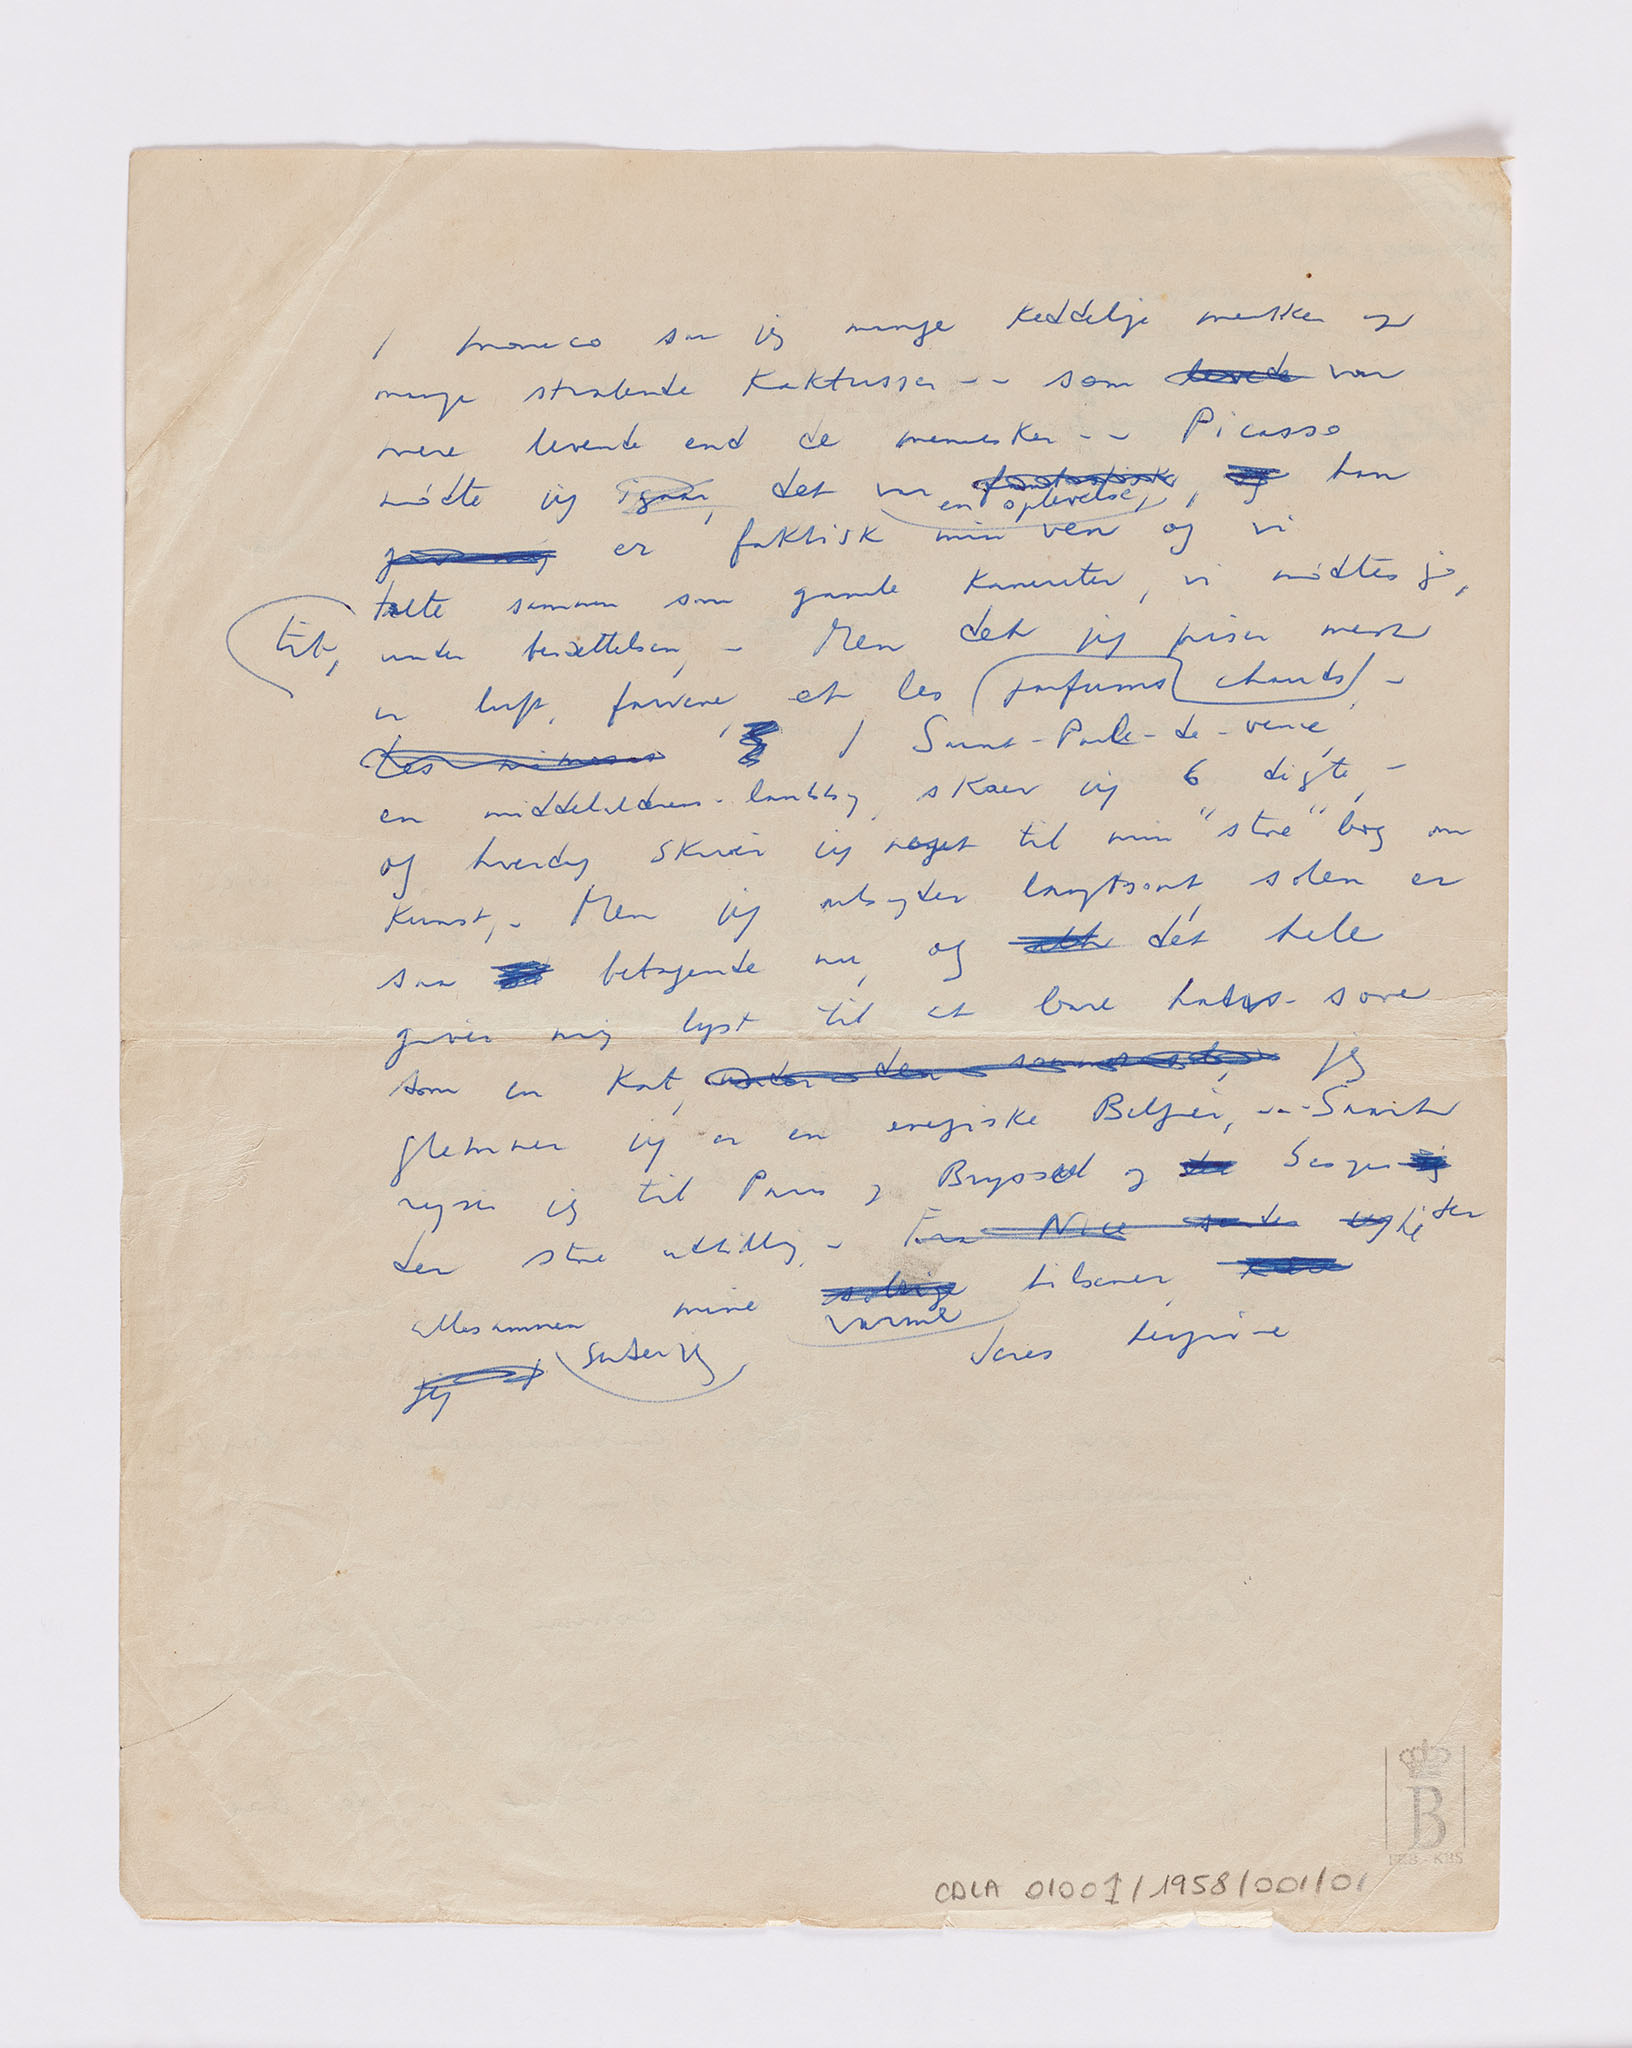 I Monaco saa jeg mange Keddelije mensker og
mange stralende Kaktusser -- som levede var
mere levende end de mennesker -- Picasso
mødte jeg igaar, det var fantastisk, og han
en oplevelse,
er faktisk min ven og vi
talte sammen som gamle Kamerater, vi mødtes jo,
tit, under besættelsen, - Men det jeg priser mest
er luft, farvene, et les parfums chauds, -
Les mimosas I Saint-Paule-de-vence,
en middelalderens-landsby, skrev jeg 6 digte, -
og hverdag skriver jeg noget til min "store" bog om
Kunst, - Men jeg arbejder langtsomt, solen er
saa betagende nu, og alt det hele
giver mig lyst til at bare sove
som en Kat, under den jeg
glemmer jeg er en energiske Belgier, -- Snart
rejser jeg til Paris og Bryssel og
der store udstilling. - Fra Nice sender jeg der
allesammen mine solrige hilsener,
varme
jeg sender jeg Jeres hengivne
CDLA 01001/1958/001/01
B
FKB - KBS